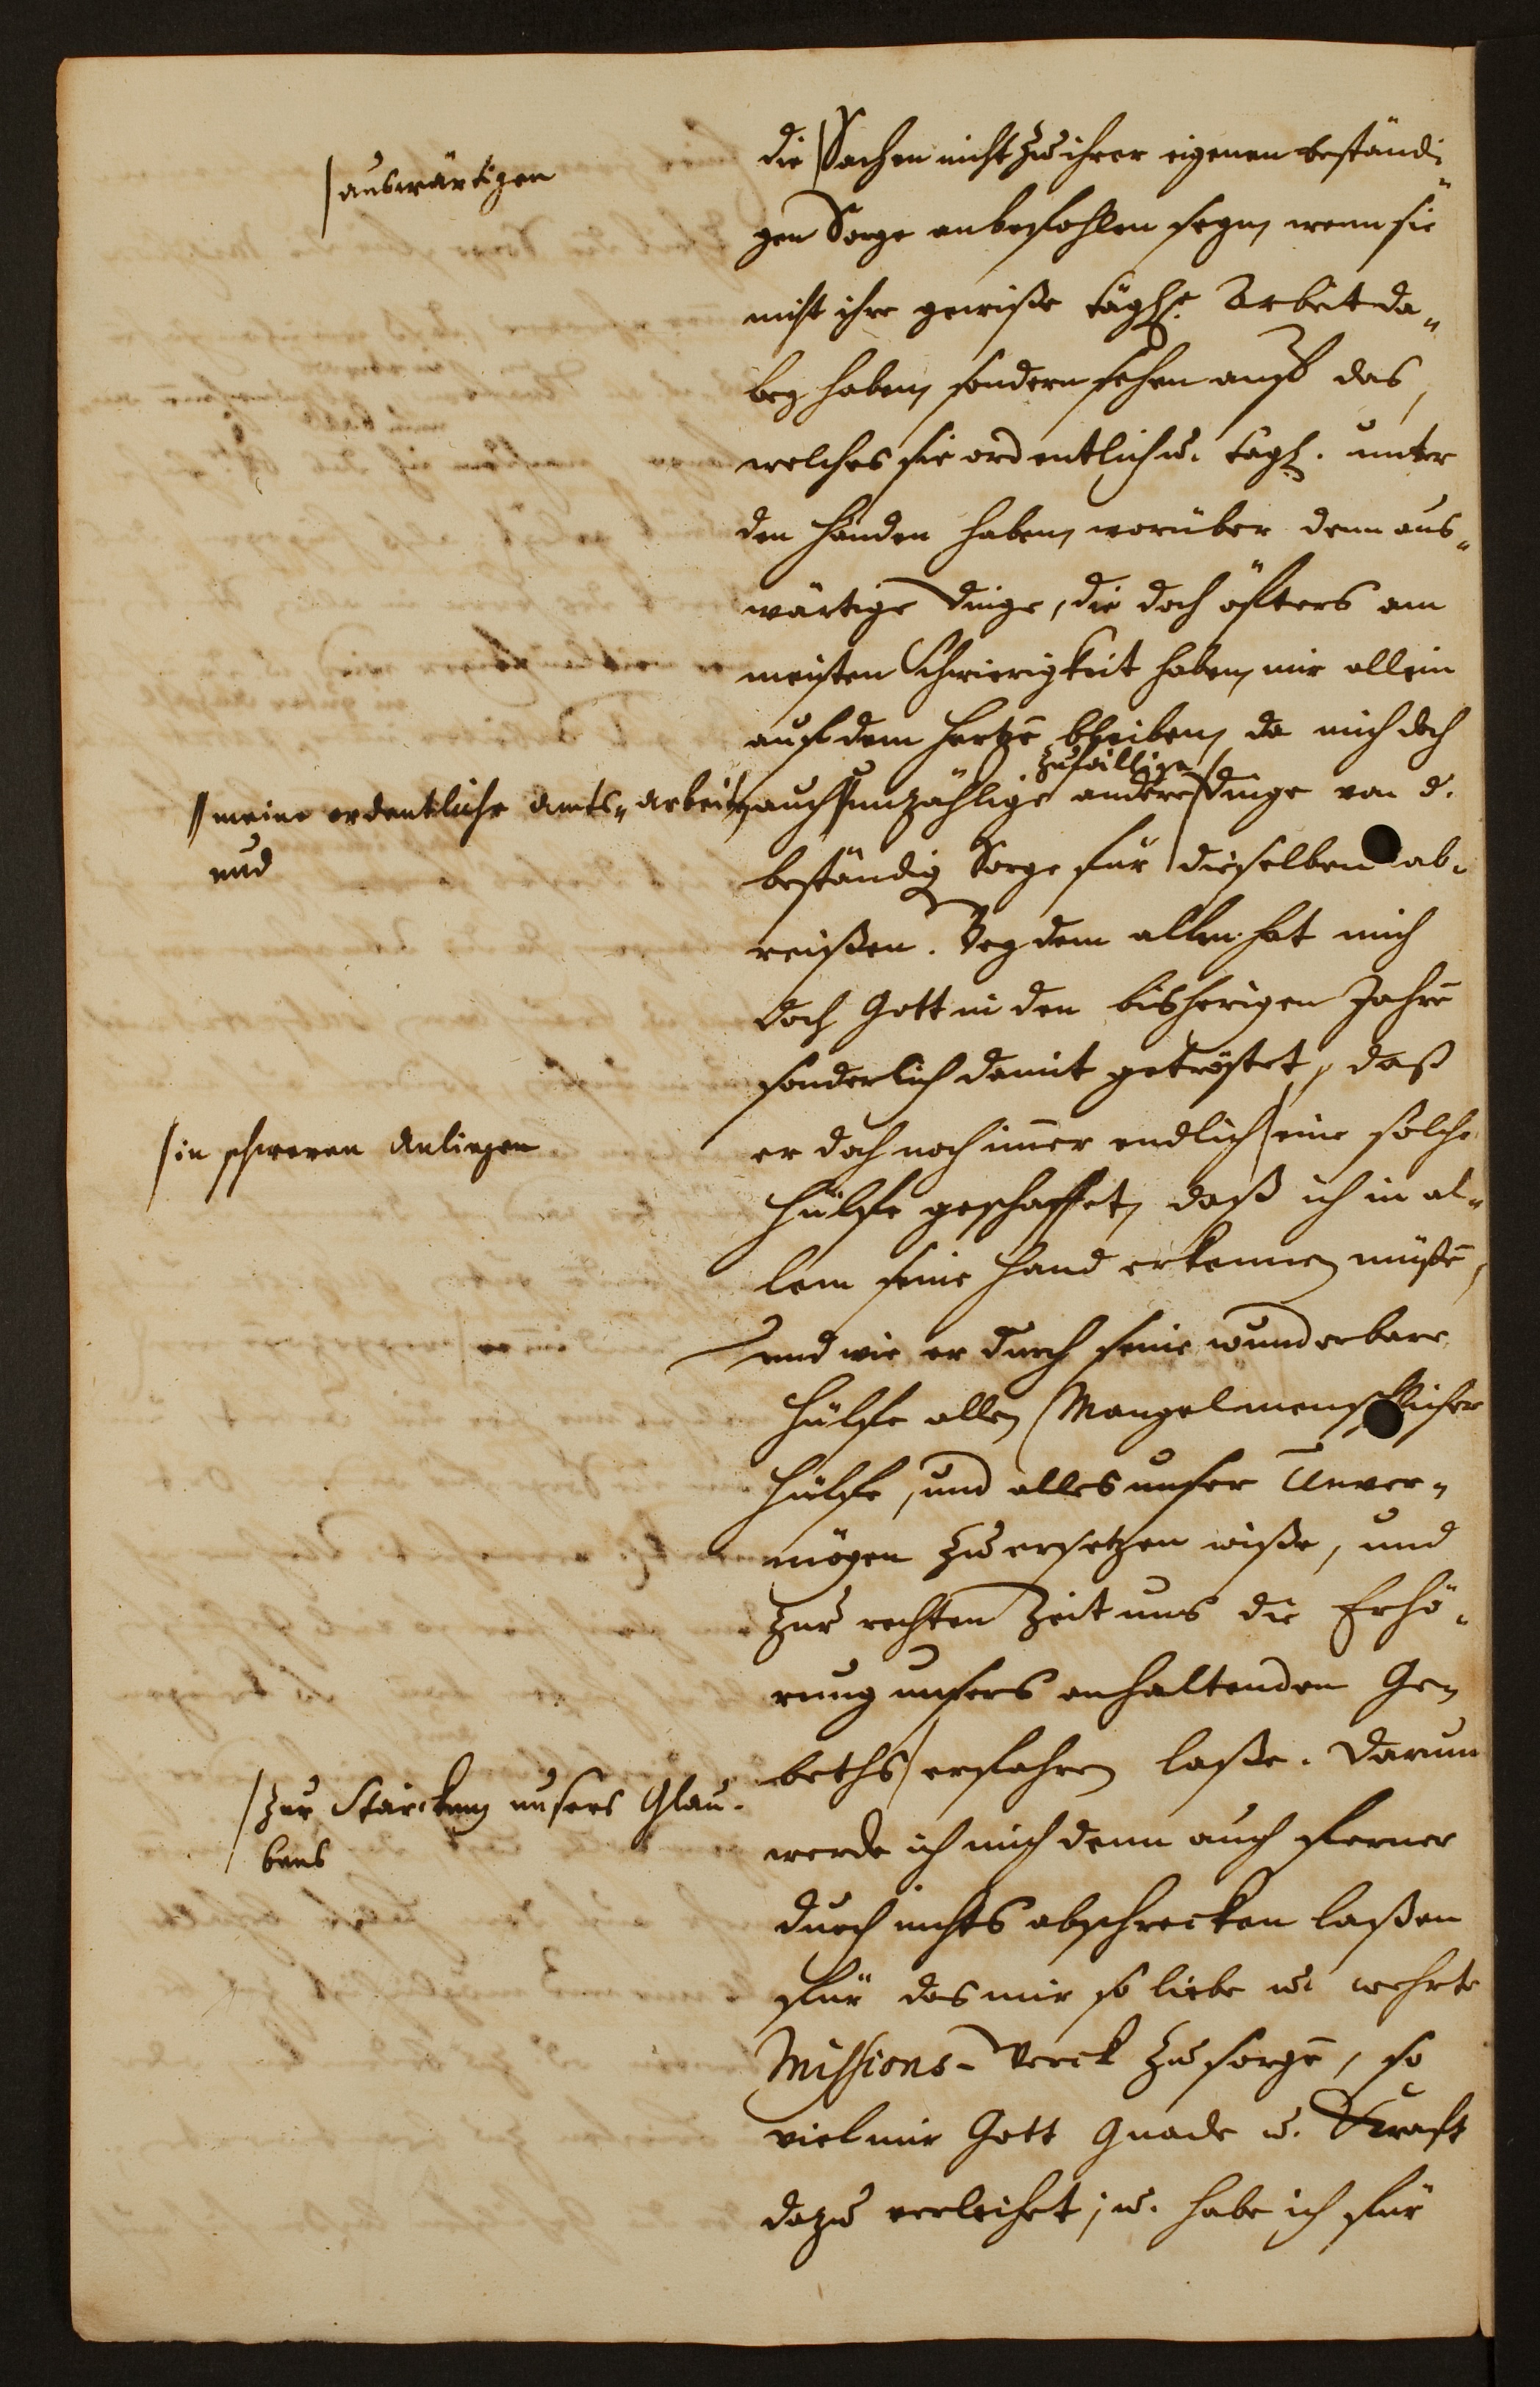 /auswärtigen
die /Sachen nicht zu ihrer eigenen beständi-
gen Sorge anbefohlen seyn, wenn sie
nicht ihre gewiße tägl. Arbeit da-
bey haben, sondern sehen auf das,
welches sie ordentlich u. tägl. unter
den Händen haben, worüber denn aus-
wärtige Dinge, die doch öfters am
meisten Schwierigkeit haben, mir allein
auf dem Hertzē bleiben, da mich doch
zufällige
//meine ordentliche Amts-Arbeit,
und
auch //unzählige andere /Dinge von d.
beständig Sorge für dieselben ab-
reißen. Bey dem allen hat mich
doch Gott in den bisherigen Jahrē
sonderlich damit getröstet, daß
/in schweren Anliegen
er doch noch im̄er endlich /eine solche
Hülfe geschaffet, daß ich in al-
lem seine Hand erkennen müßē,
und wie er durch seine wunderbare
Hülfe allen Mangel menschlicher
Hülfe, und alles unser Unver-
mögen zu ersetzen wiße, und
zur rechten Zeit uns die Erhö-
rung unsers anhaltenden Ge-
/zur Stärckung unsers Glau-
bens
beths /erfahren laße. Darum
werde ich mich denn auch ferner
durch nichts abschrecken laßen
für das mir so liebe u. wehrte
Missions-Werck zu sorgē, so
viel mir Gott Gnade u. Kraft
dazu verleihet; u. habe ich für